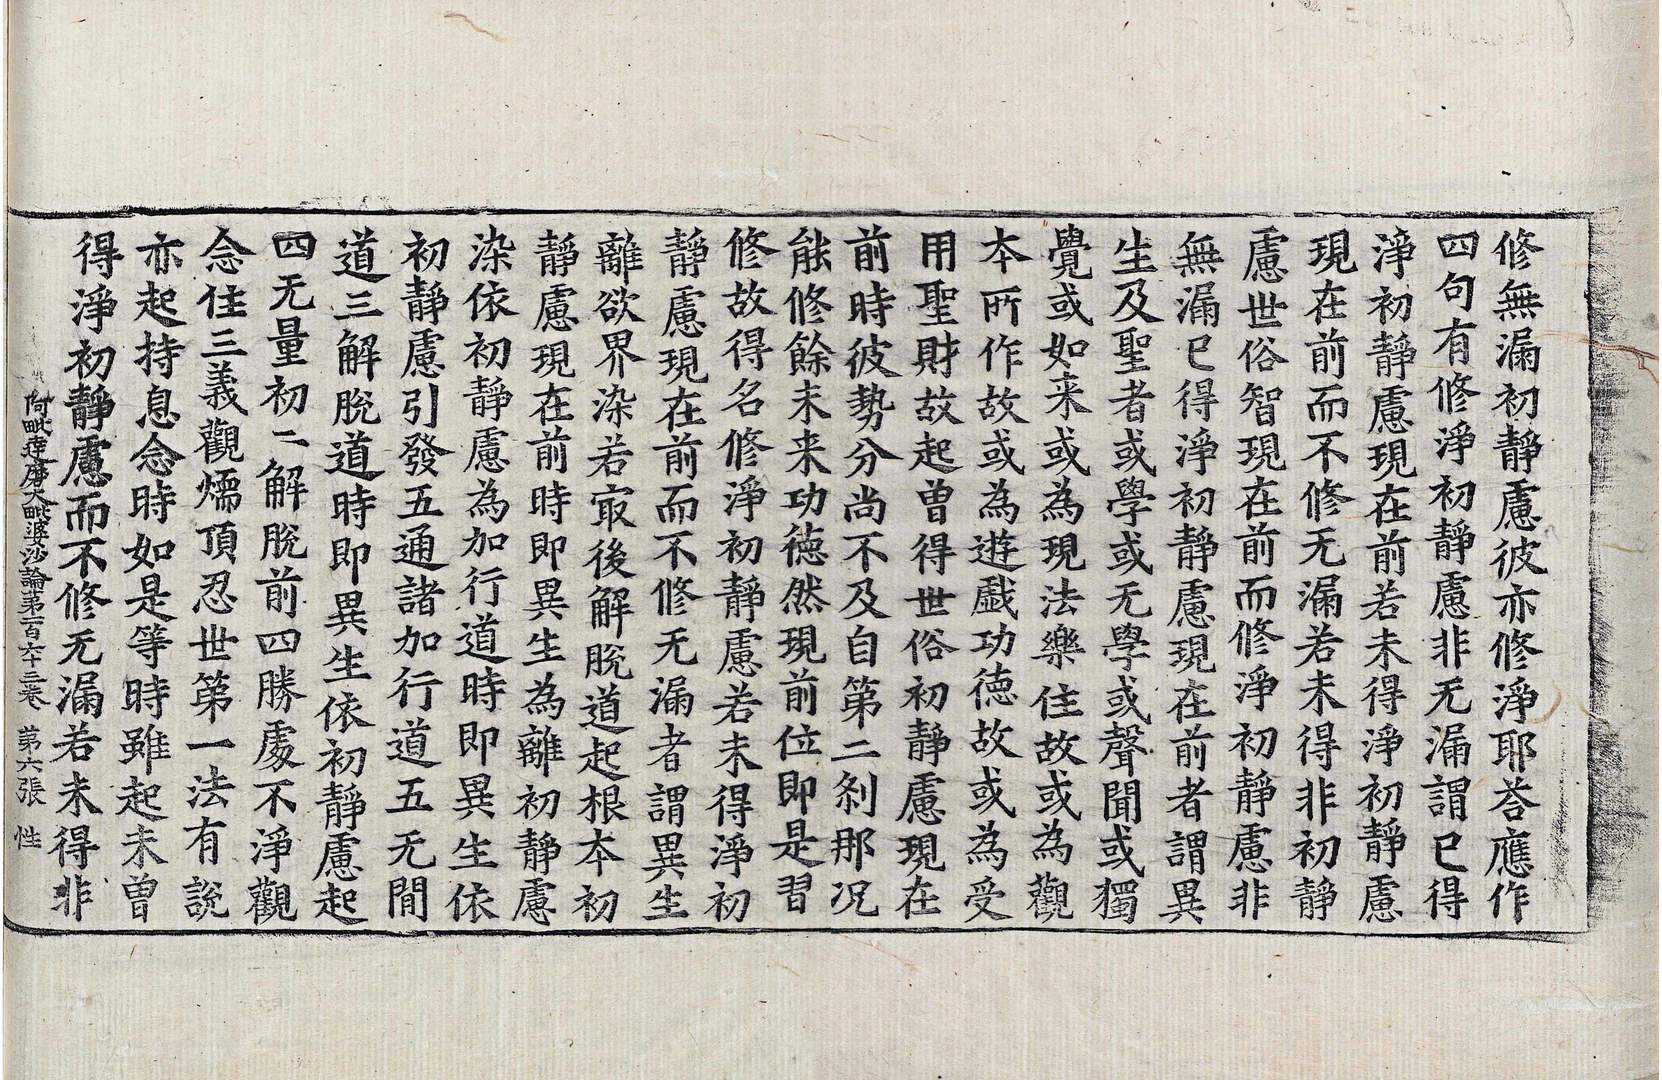 修無漏初靜慮彼亦修淨耶荅應作
四句有修淨初靜慮非无漏謂已得
淨初靜慮現在前若未得淨初靜慮
現在前而不修无漏若未得非初靜
慮世俗智現在前而修淨初靜慮非
無漏已得淨初靜慮現在前者謂異
生及聖者或學或无學或聲聞或獨
覺或如来或為現法樂住故或為觀
本所作故或為遊戲功德故或為受
用聖財故起曾得世俗初靜慮現在
前時彼勢分尚不及自第二剎那况
能修餘未来功德然現前位即是習
修故得名修淨初靜慮若未得淨初
靜慮現在前而不修无漏者謂異生
離欲界染若冣後解脫道起根本初
靜慮現在前時即異生為離初靜慮
染依初靜慮為加行道時即異生依
初靜慮引發五通諸加行道五无間
道三解脫道時即異生依初靜慮起
四无量初二解脫前四勝處不淨觀
念住三義觀煗頂忍世第一法有說
亦起持息念時如是等時雖起未曾
得淨初靜慮而不修无漏若未得非
阿毗達磨大毗婆沙論第一百六十三卷 第六張 性